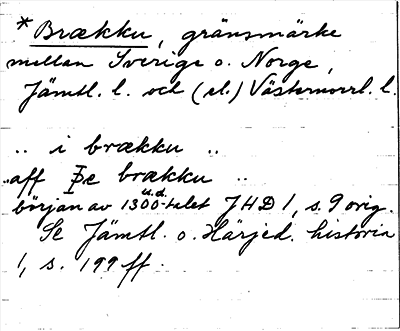 *Brækku, gränsmärke
mellan Sverige o. Norge,
Jämtl. l. och (sl.) Västernorrl. l.
.. i brækku ..
..aff Þe brækku ..
u.d.
början av 1300-talet JHD 1, s. 9 orig.
Se Jämtl. o. Härjed. historia
1, s. 199 ff.